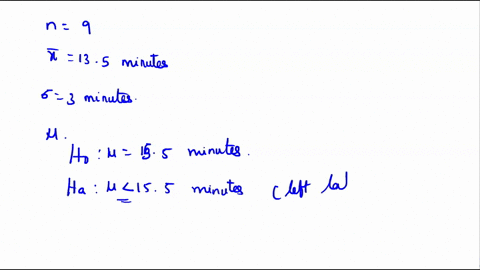 n = 9
x̄ = 13.5 minutes
σ = 3 minutes.
μ.
H₀ : μ = 15.5 minutes.
Ha : μ < 15.5 minutes ( left